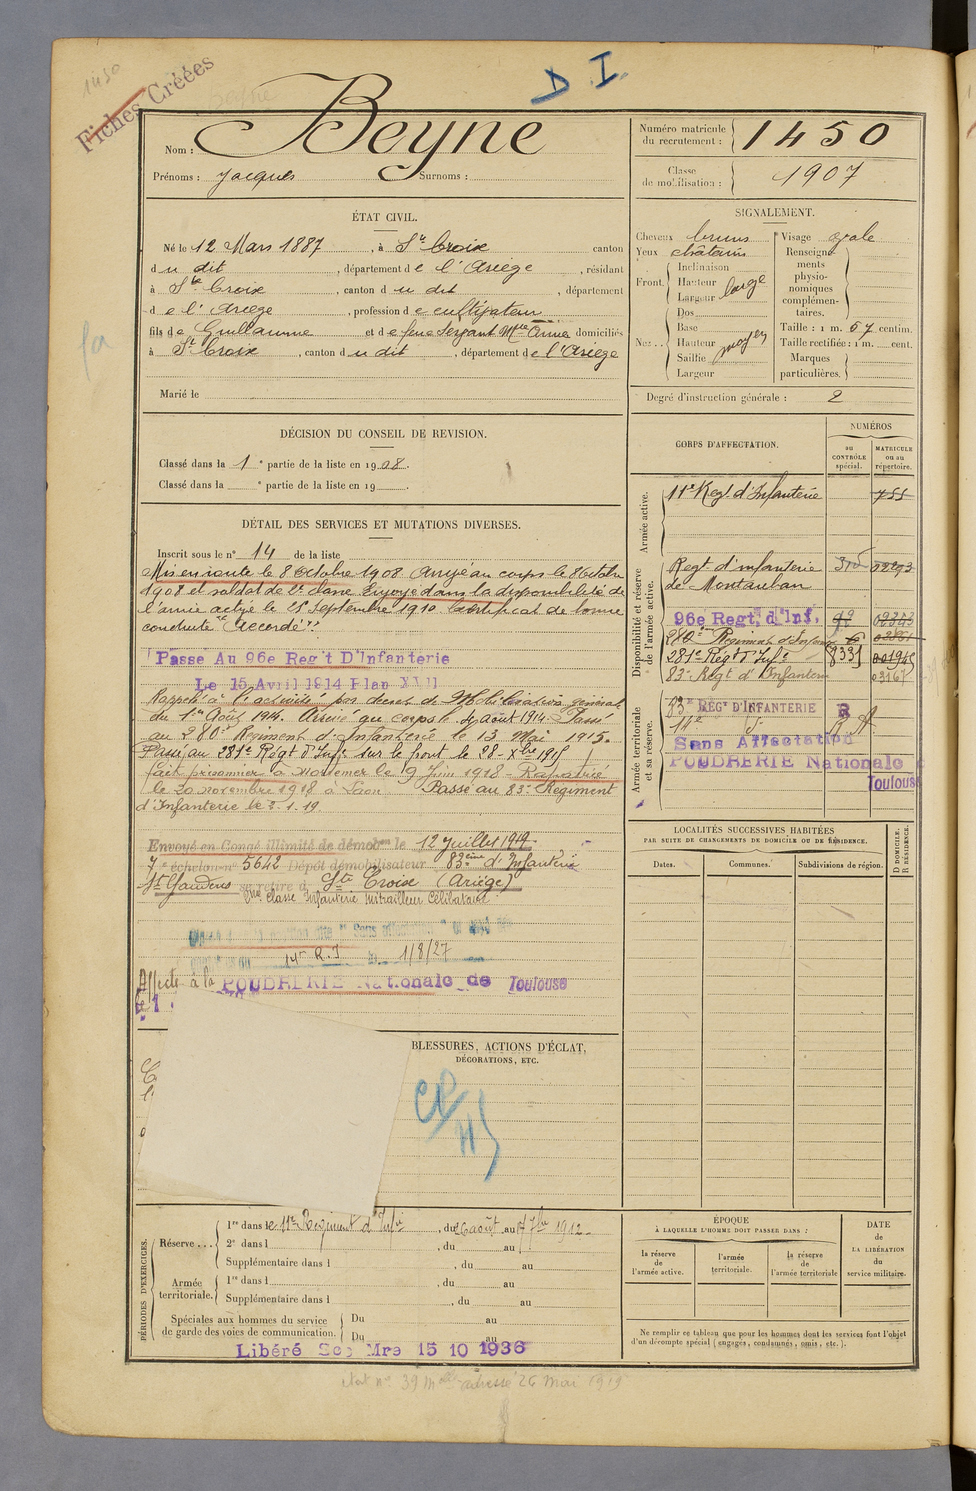 1450
Fiches Créées
D I.
Nom : Beyne
Prénoms : Jacques Surnoms :
Numéro matricule du recrutement : 1450
Classe de mobilisation : 1907
ÉTAT CIVIL.
Né le 12 Mars 1887, à Ste Croix canton
du dit, département de l'Ariège, résidant
à Ste Croix, canton du dit, département
de l'Ariège, profession de cultivateur
fils de Guillaume et de feue Sergant Mie Anna domiciliés
à St Croix, canton du dit, département de l'Ariège
Marié le
SIGNALEMENT.
Cheveux bruns
Yeux châtains
Front. Inclinaison
Hauteur
Largeur large
Nez.. Dos
Base
Hauteur moyen
Saillie
Largeur
Visage ovale
Renseignements physionomiques complémentaires.
Taille : 1 m. 57 centim.
Taille rectifiée : 1 m. cent.
Marques particulières.
Degré d'instruction générale : 2
DÉCISION DU CONSEIL DE REVISION.
Classé dans la 1e partie de la liste en 1908.
Classé dans la e partie de la liste en 19
DÉTAIL DES SERVICES ET MUTATIONS DIVERSES.
Inscrit sous le n° 14 de la liste
Mis en route le 8 Octobre 1908. Arrivé au corps le 8 Octobre
1908 et soldat de 2e classe. Envoyé dans la disponibilité de
l'armée active le 25 Septembre 1910. Certificat de bonne
conduite "Accordé".
Passé Au 96e Reg't D'Infanterie
Le 15 Avril 1914 Plan XVII
Rappelé à l'activité par décret de Mobilisation générale
du 1er Août 1914. Arrivé au corps le 4 août 1914. Passé
au 280e Régiment d'Infanterie le 13 Mai 1915.
Passé au 281e Régt d'Infie sur le front le 28 Xbre 1915
fait prisonnier à le 9 Juin 1918 - Rapatrié
le 30 novembre 1918 à Laon Passé au 83e Régiment
d'Infanterie le 2.1.19.
Envoyé en Congé illimité de démobon le 12 Juillet 1919.
7e échelon n° 5642 Dépôt démobilisateur 83ème d'Infanterie
St Gaudens se retire à Ste Croix (Ariège)
2me classe Infanterie mitrailleur Célibataire
" Sans affectation "
14e R.I 1/8/27
Affecté à la POUDRERIE Nationale de Toulouse
CORPS D'AFFECTATION.
NUMÉROS
au CONTRÔLE spécial.
MATRICULE ou au répertoire.
Armée active.
11e Regt d'Infanterie 755
Disponibilité et réserve de l'armée active.
Regt d'infanterie
de Montauban
96e Regt. d'Inf.
280e Régiment d'Infanterie
281e Régt d'Infie 01945
83e Régt d'Infanterie
Armée territoriale et sa réserve.
83e RÉGt D'INFANTERIE R
14e d° R A
Sans Affectation
POUDRERIE Nationale
Toulouse
LOCALITÉS SUCCESSIVES HABITÉES
PAR SUITE DE CHANGEMENTS DE DOMICILE OU DE RÉSIDENCE.
Dates. Communes. Subdivisions de région. D DOMICILE. R RÉSIDENCE.
BLESSURES, ACTIONS D'ÉCLAT,
DÉCORATIONS, ETC.
PÉRIODES D'EXERCICES.
Réserve ... 1re dans le 11e Régiment d'Infie, du 26 août au 1912
2e dans l, du au
Supplémentaire dans l, du au
Armée territoriale. 1re dans l, du au
Supplémentaire dans l, du au
Spéciales aux hommes du service de garde des voies de communication. Du au
Du au
Libéré Sce Mre 15 10 1936
ÉPOQUE
À LAQUELLE L'HOMME DOIT PASSER DANS :
la réserve de l'armée active.
l'armée territoriale.
la réserve de l'armée territoriale
DATE de LA LIBÉRATION du service militaire.
Ne remplir ce tableau que pour les hommes dont les services font l'objet
d'un décompte spécial (engagés, condamnés, omis, etc.).
26 mai 1919